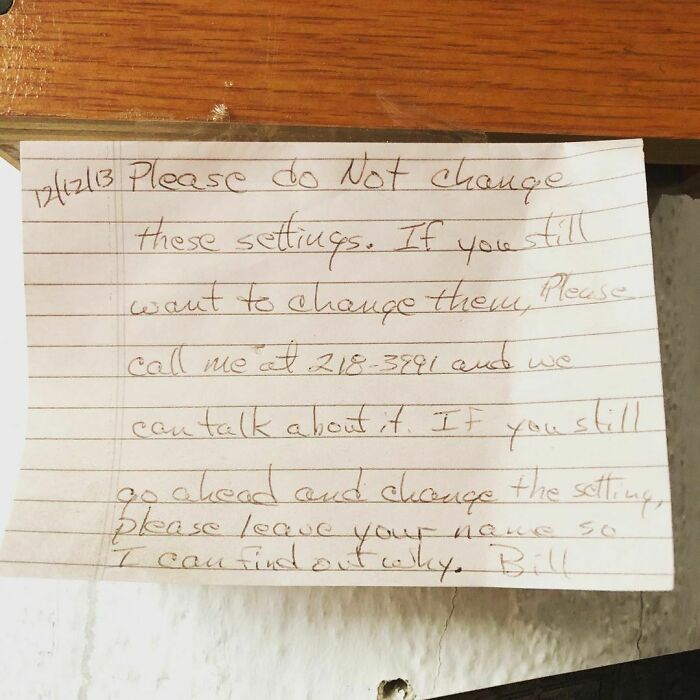 12/12/13 Please do Not change
these settings. If you still
want to change them, Please
call me at 218-3991 and we
can talk about it. If you still
go ahead and change the setting,
please leave your name so
I can find out why. Bill